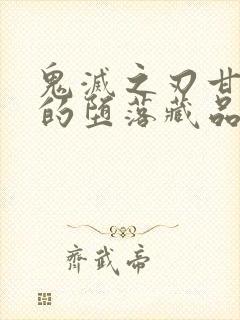 鬼滅之刃甘
的堕落藏品
齊武帝